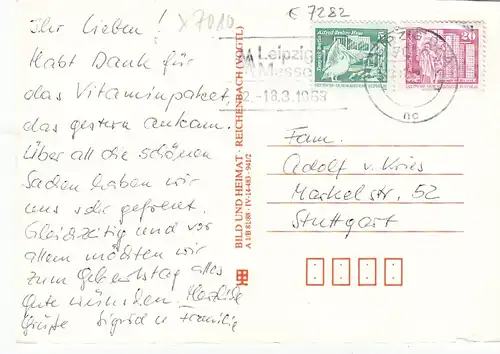 Ihr Lieben!
Habt Dank für
das Vitaminpaket,
das gestern ankam.
Über all die schönen
Sachen haben wir
uns sehr gefreut.
Gleichzeitig und vor
allem möchten wir
zum Geburtstag alles
Gute wünschen. Herzliche
Grüße Sigrid u Familie
X7010
€ 7282
Leipziger
Messe
12.-18.3.1988
Alfred-Brehm-Haus
Tierpark Berlin
5
DDR
20
BILD UND HEIMAT · REICHENBACH (VOGTL)
A 1/B 81/88 · IV-14-483 · 941/2
Fam.
Adolf v. Kries
Markelstr. 52
Stuttgart